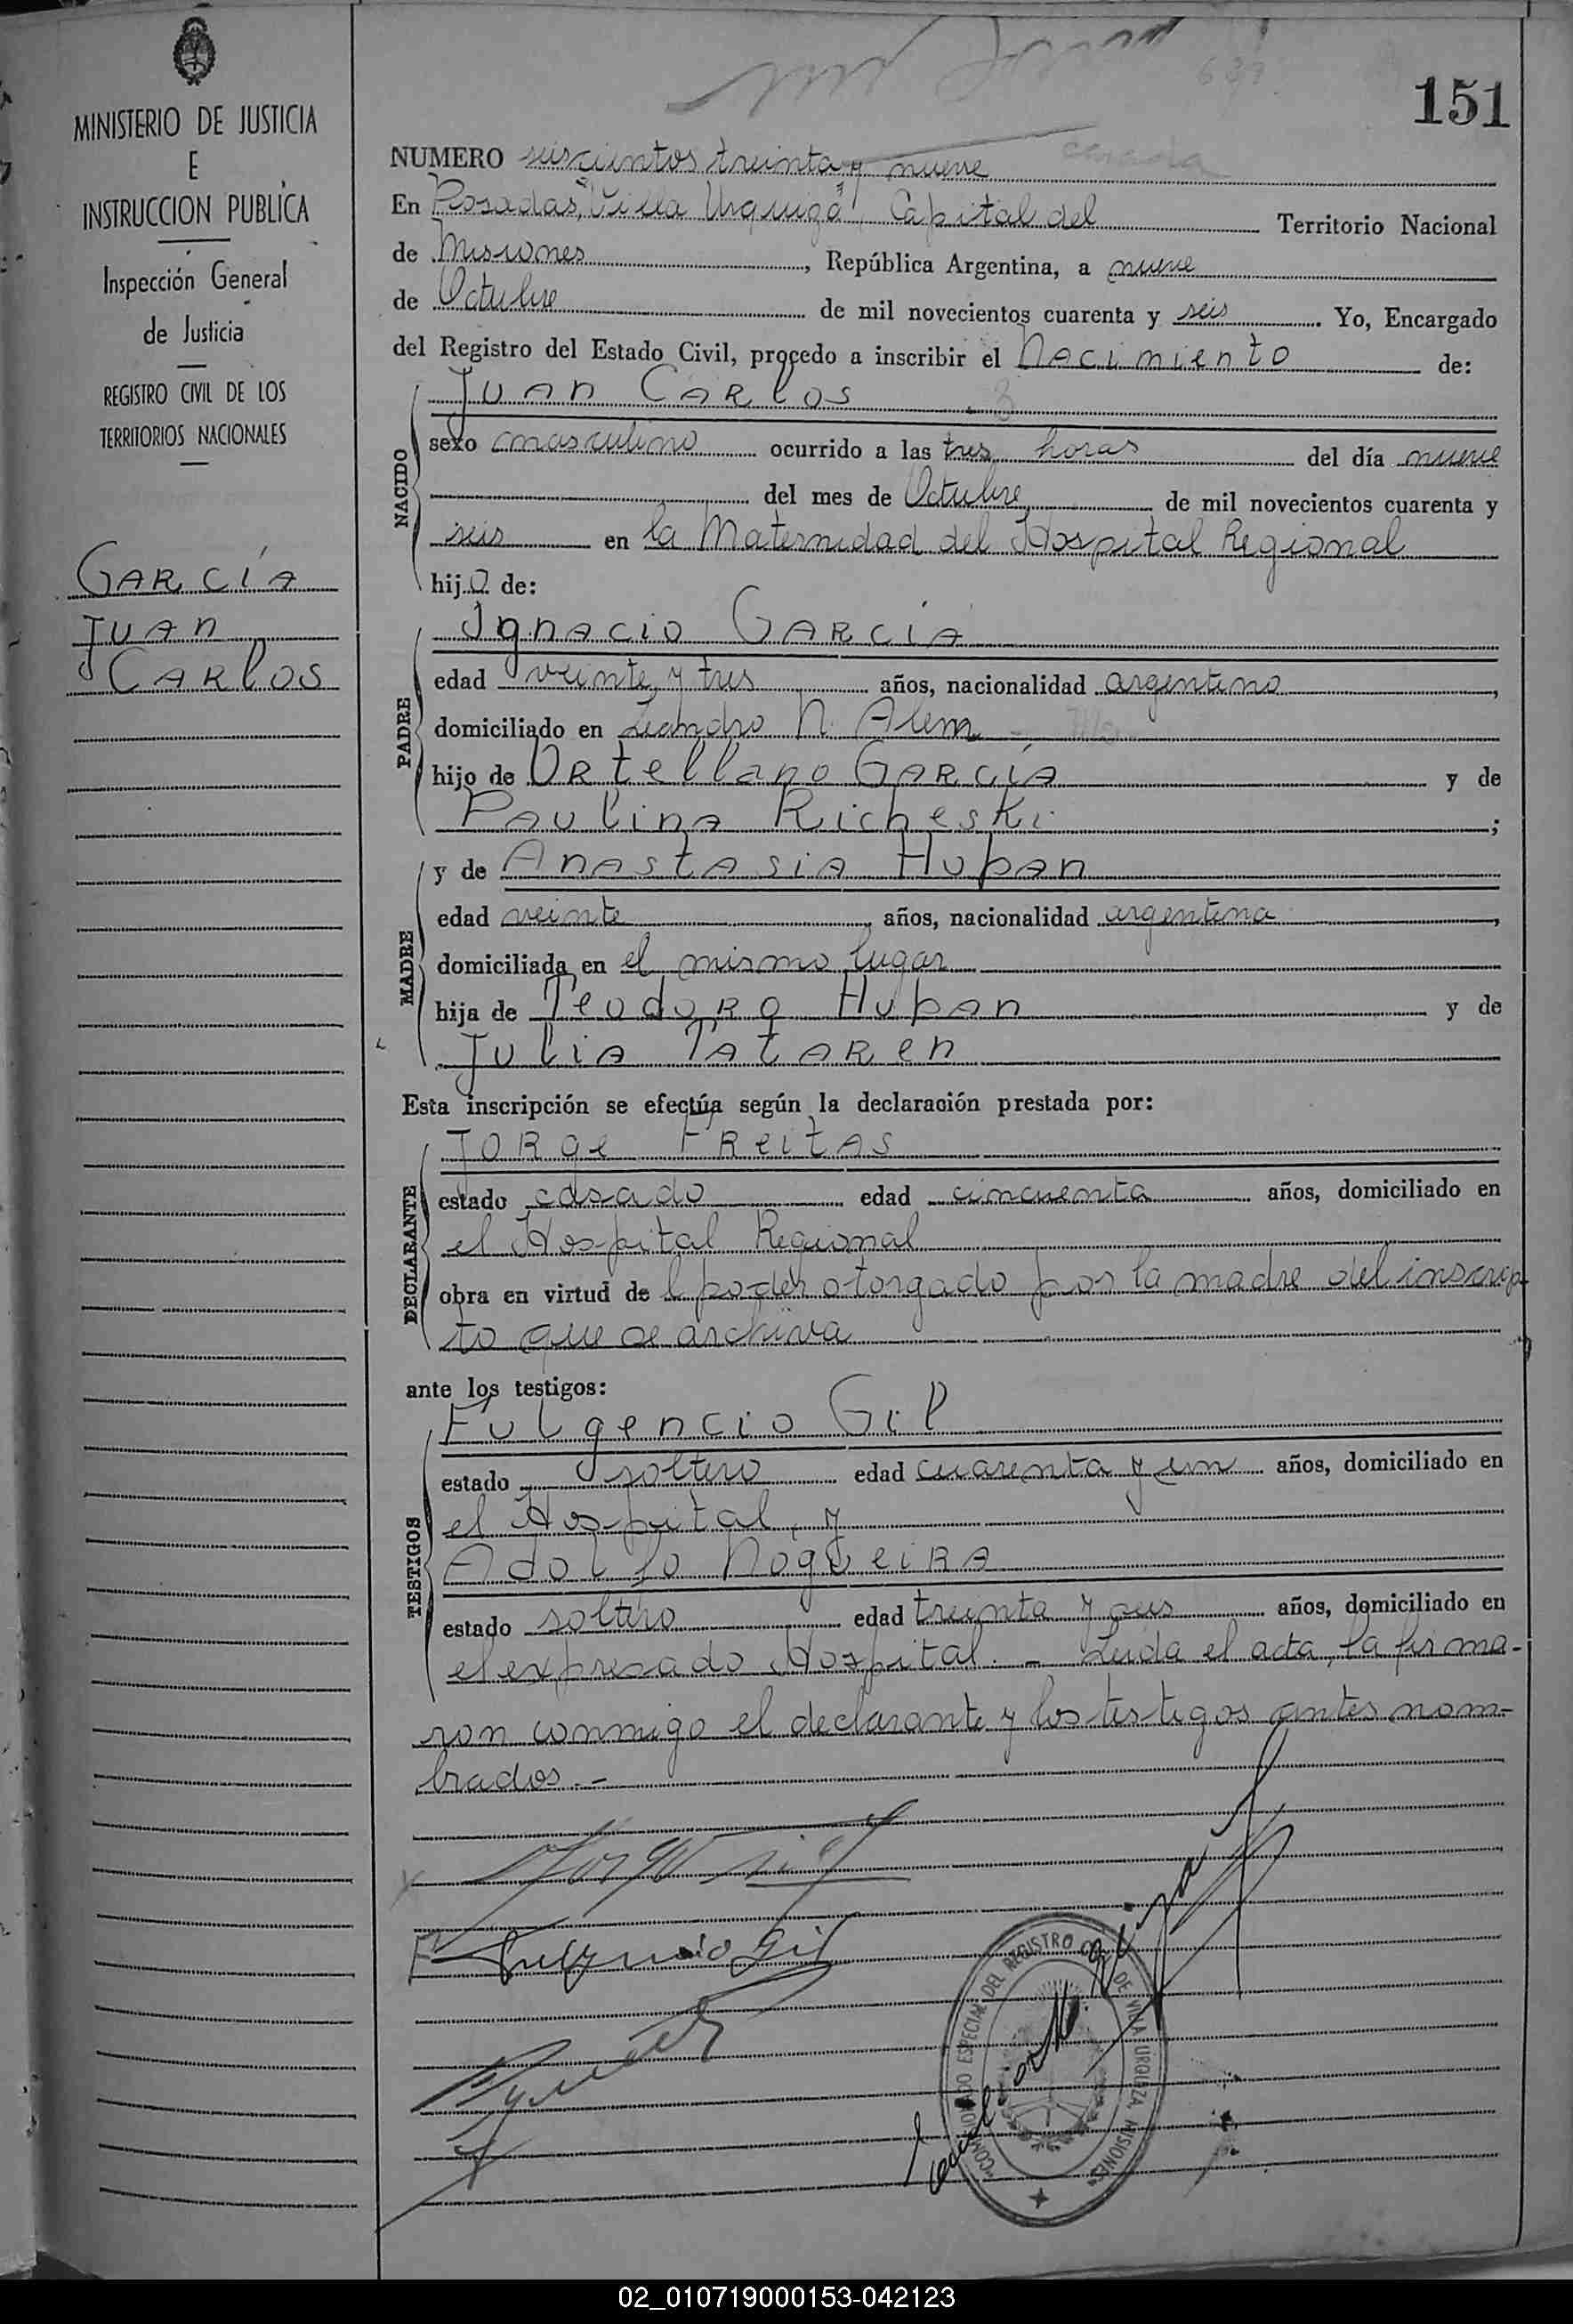 151
MINISTERIO DE JUSTICIA
E
INSTRUCCION PUBLICA
Inspección General
de Justicia
REGISTRO CIVIL DE LOS
TERRITORIOS NACIONALES
GARCÍA
JUAN
CARLOS
639
NUMERO seiscientos treinta y nueve
En Posadas, "Villa Urquiza", Capital del Territorio Nacional
de Misiones, República Argentina, a nueve
de Octubre de mil novecientos cuarenta y seis. Yo, Encargado
del Registro del Estado Civil, procedo a inscribir el Nacimiento de:
NACIDO
JUAN CARLOS
sexo masculino ocurrido a las tres horas del día nueve
del mes de Octubre de mil novecientos cuarenta y
seis en la Maternidad del Hospital Regional
hijo de:
PADRE
Ignacio GARCÍA
edad veinte y tres años, nacionalidad argentino,
domiciliado en Leandro N. Alem
hijo de Ortellano GARCÍA y de
Paulina Richeski;
MADRE
y de Anastasia Huban
edad veinte años, nacionalidad argentina,
domiciliada en el mismo lugar
hija de Teodoro Huban y de
Julia Tataren
Esta inscripción se efectúa según la declaración prestada por:
DECLARANTE
Jorge FREITAS
estado casado edad cincuenta años, domiciliado en
el Hospital Regional
obra en virtud del poder otorgado por la madre del inscrip
to que se archiva
ante los testigos:
TESTIGOS
Fulgencio Gil
estado soltero edad cuarenta y un años, domiciliado en
el Hospital, y
Adolfo Nogueira
estado soltero edad treinta y seis años, domiciliado en
el expresado Hospital. - Leída el acta, la firma-
ron conmigo el declarante y los testigos antes nom-
brados.-
Fulgencio Gil
"COMISIONADO ESPECIAL DEL REGISTRO CIVIL DE VILLA URQUIZA, MISIONES"
02_010719000153-042123